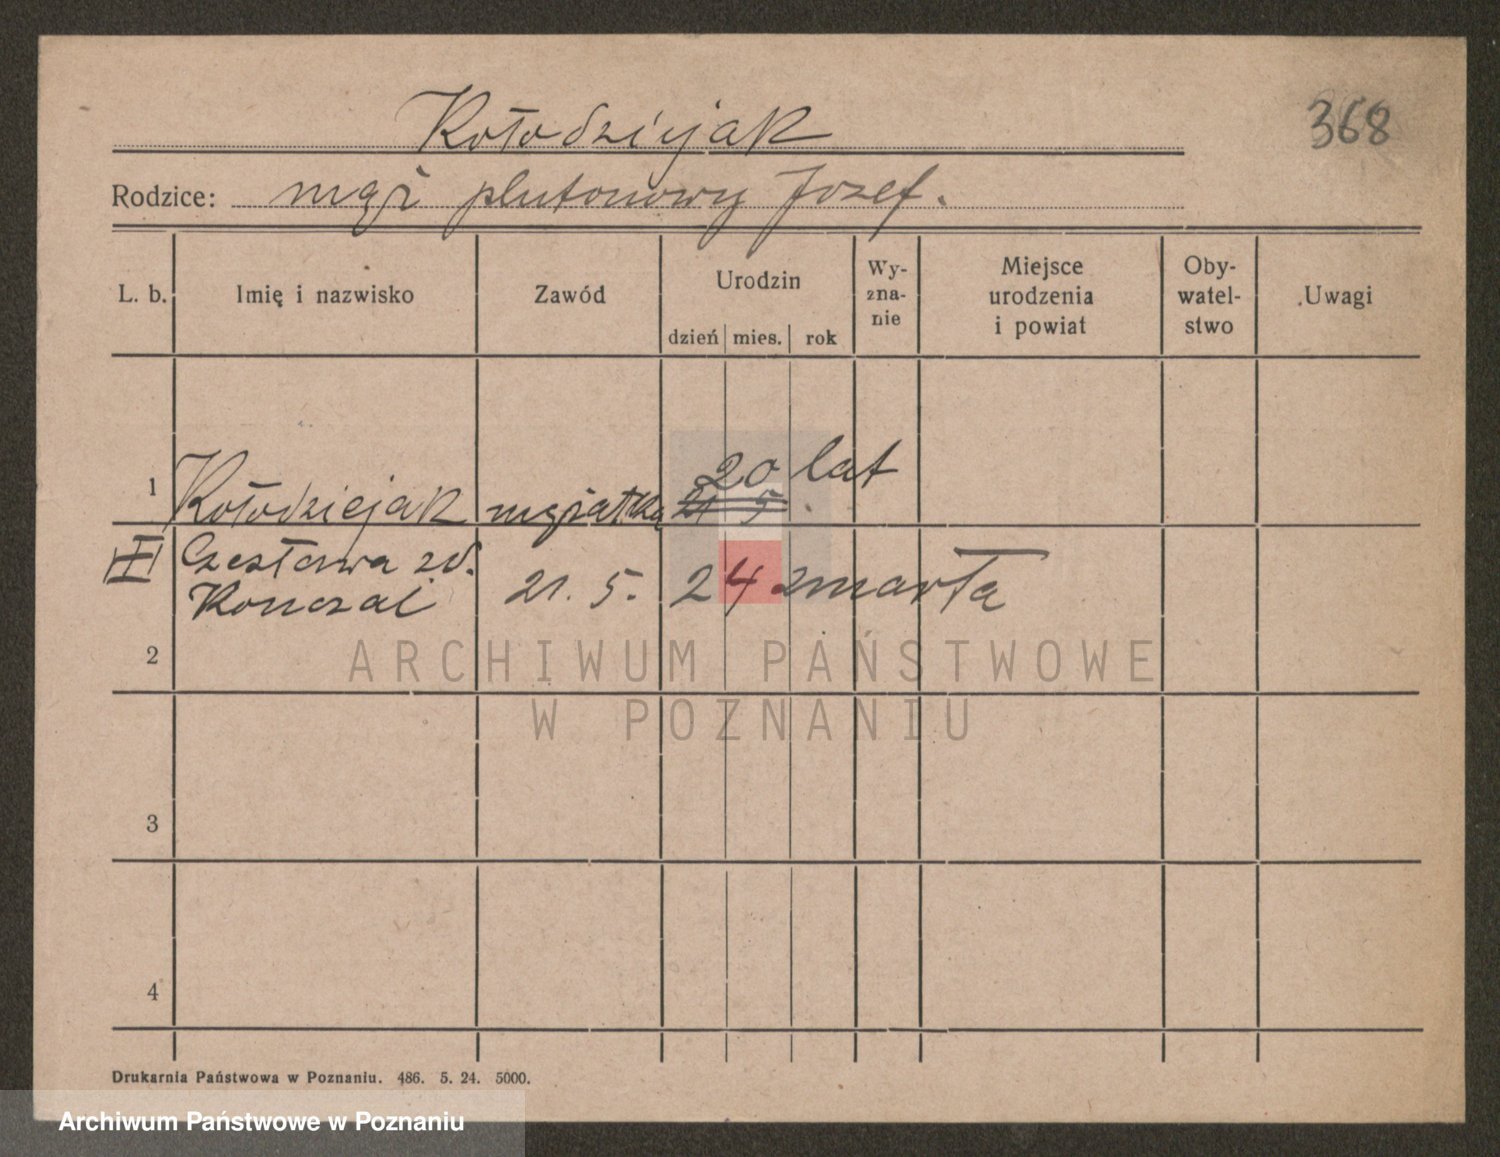 Kołodziejak
368
Rodzice: mąż plutonowy Jozef.
L. b. Imię i nazwisko Zawód Urodzin dzień mies. rok Wy-zna-nie Miejsce urodzenia i powiat Oby-watel-stwo Uwagi
20 lat
1 Kołodziejak mężatka 21 5
Czesława zd.
Konczal 21. 5. 24 zmarła
2
ARCHIWUM PAŃSTWOWE
W POZNANIU
3
4
Drukarnia Państwowa w Poznaniu. 486. 5. 24. 5000.
Archiwum Państwowe w Poznaniu